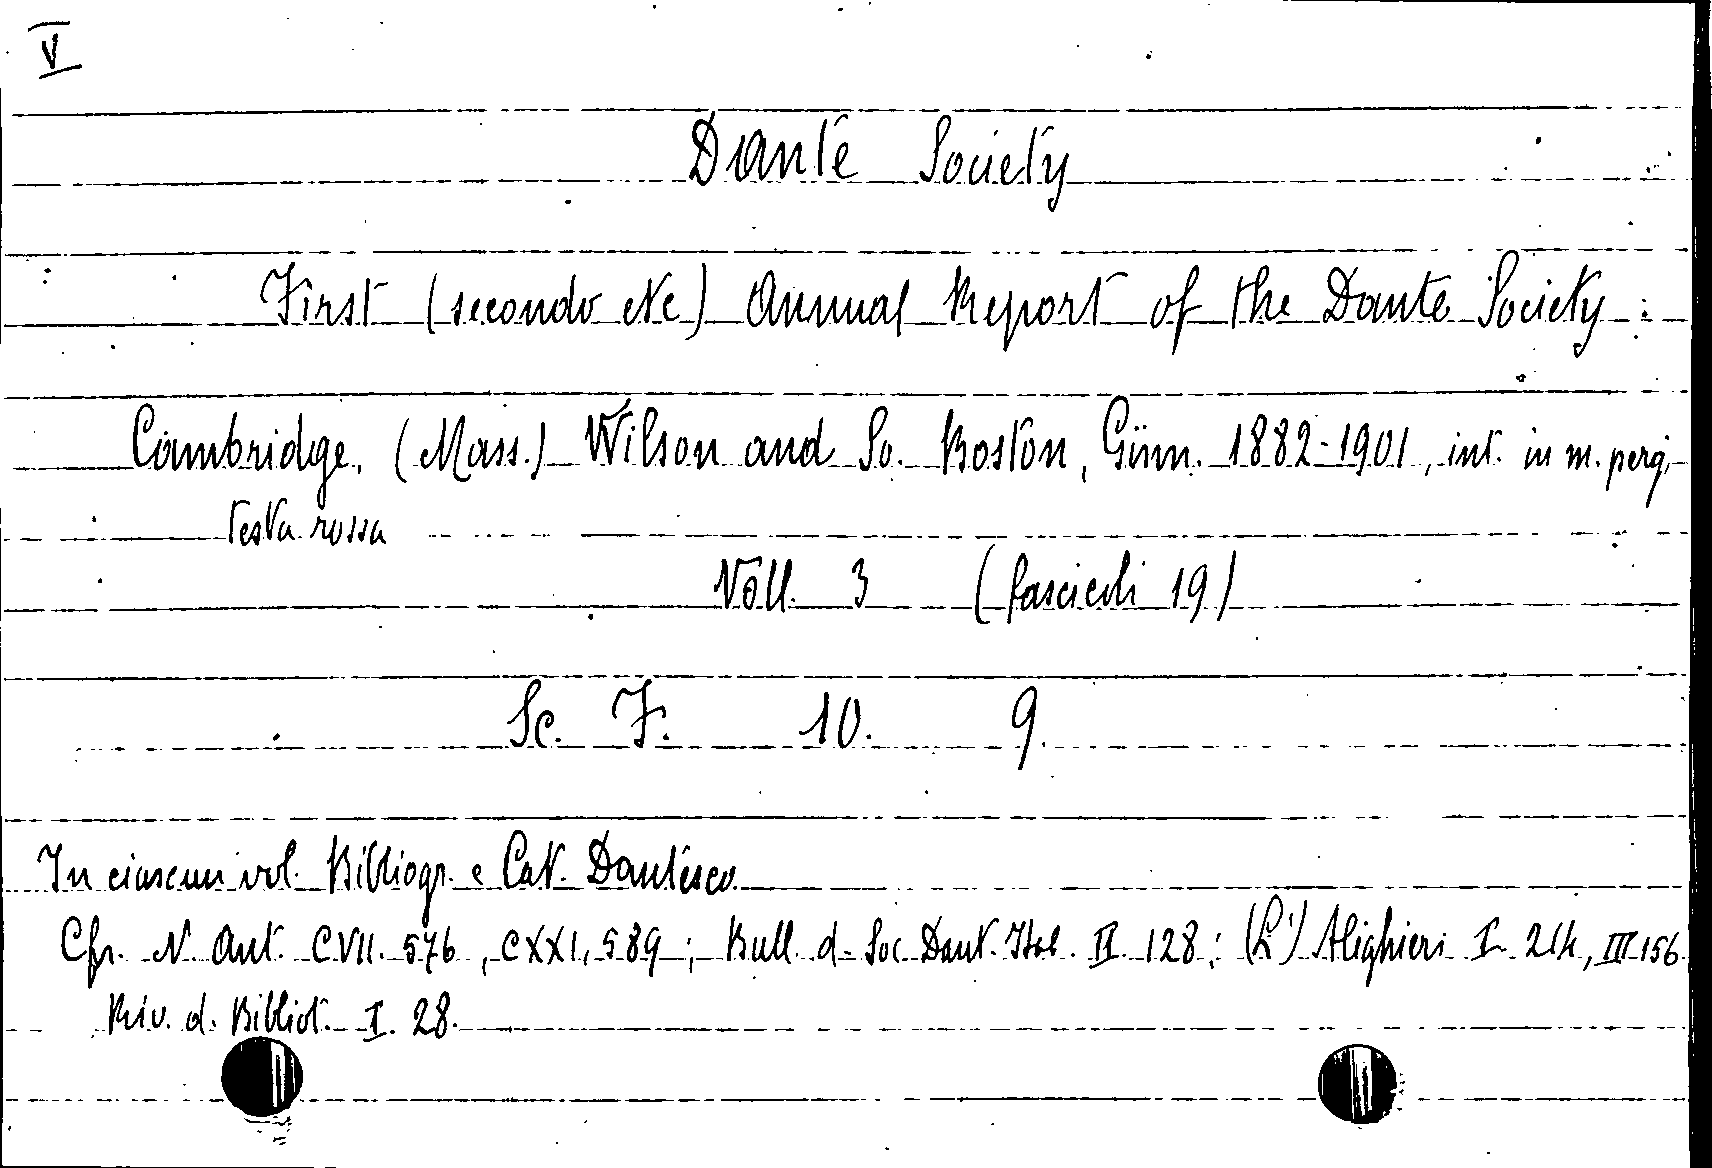 V
Dante Society
First (secondo etc) Annual Report of the Dante Society:
Cambridge, (Mass.) Wilson and So. Boston, Ginn. 1882-1901, int. in m. perg,
testa rossa
Voll. 3 (fascicoli 19)
Sc. F. 10. 9.
In ciascun vol. Bibliogr. e Cat. Dantesco.
Cfr. N. Ant. CVII. 576, CXXI, 589; Bull. d. Soc. Dant. Ital. II. 128; (L') Alighieri I. 214, III 156
Riv. d. Bibliot. I. 28.